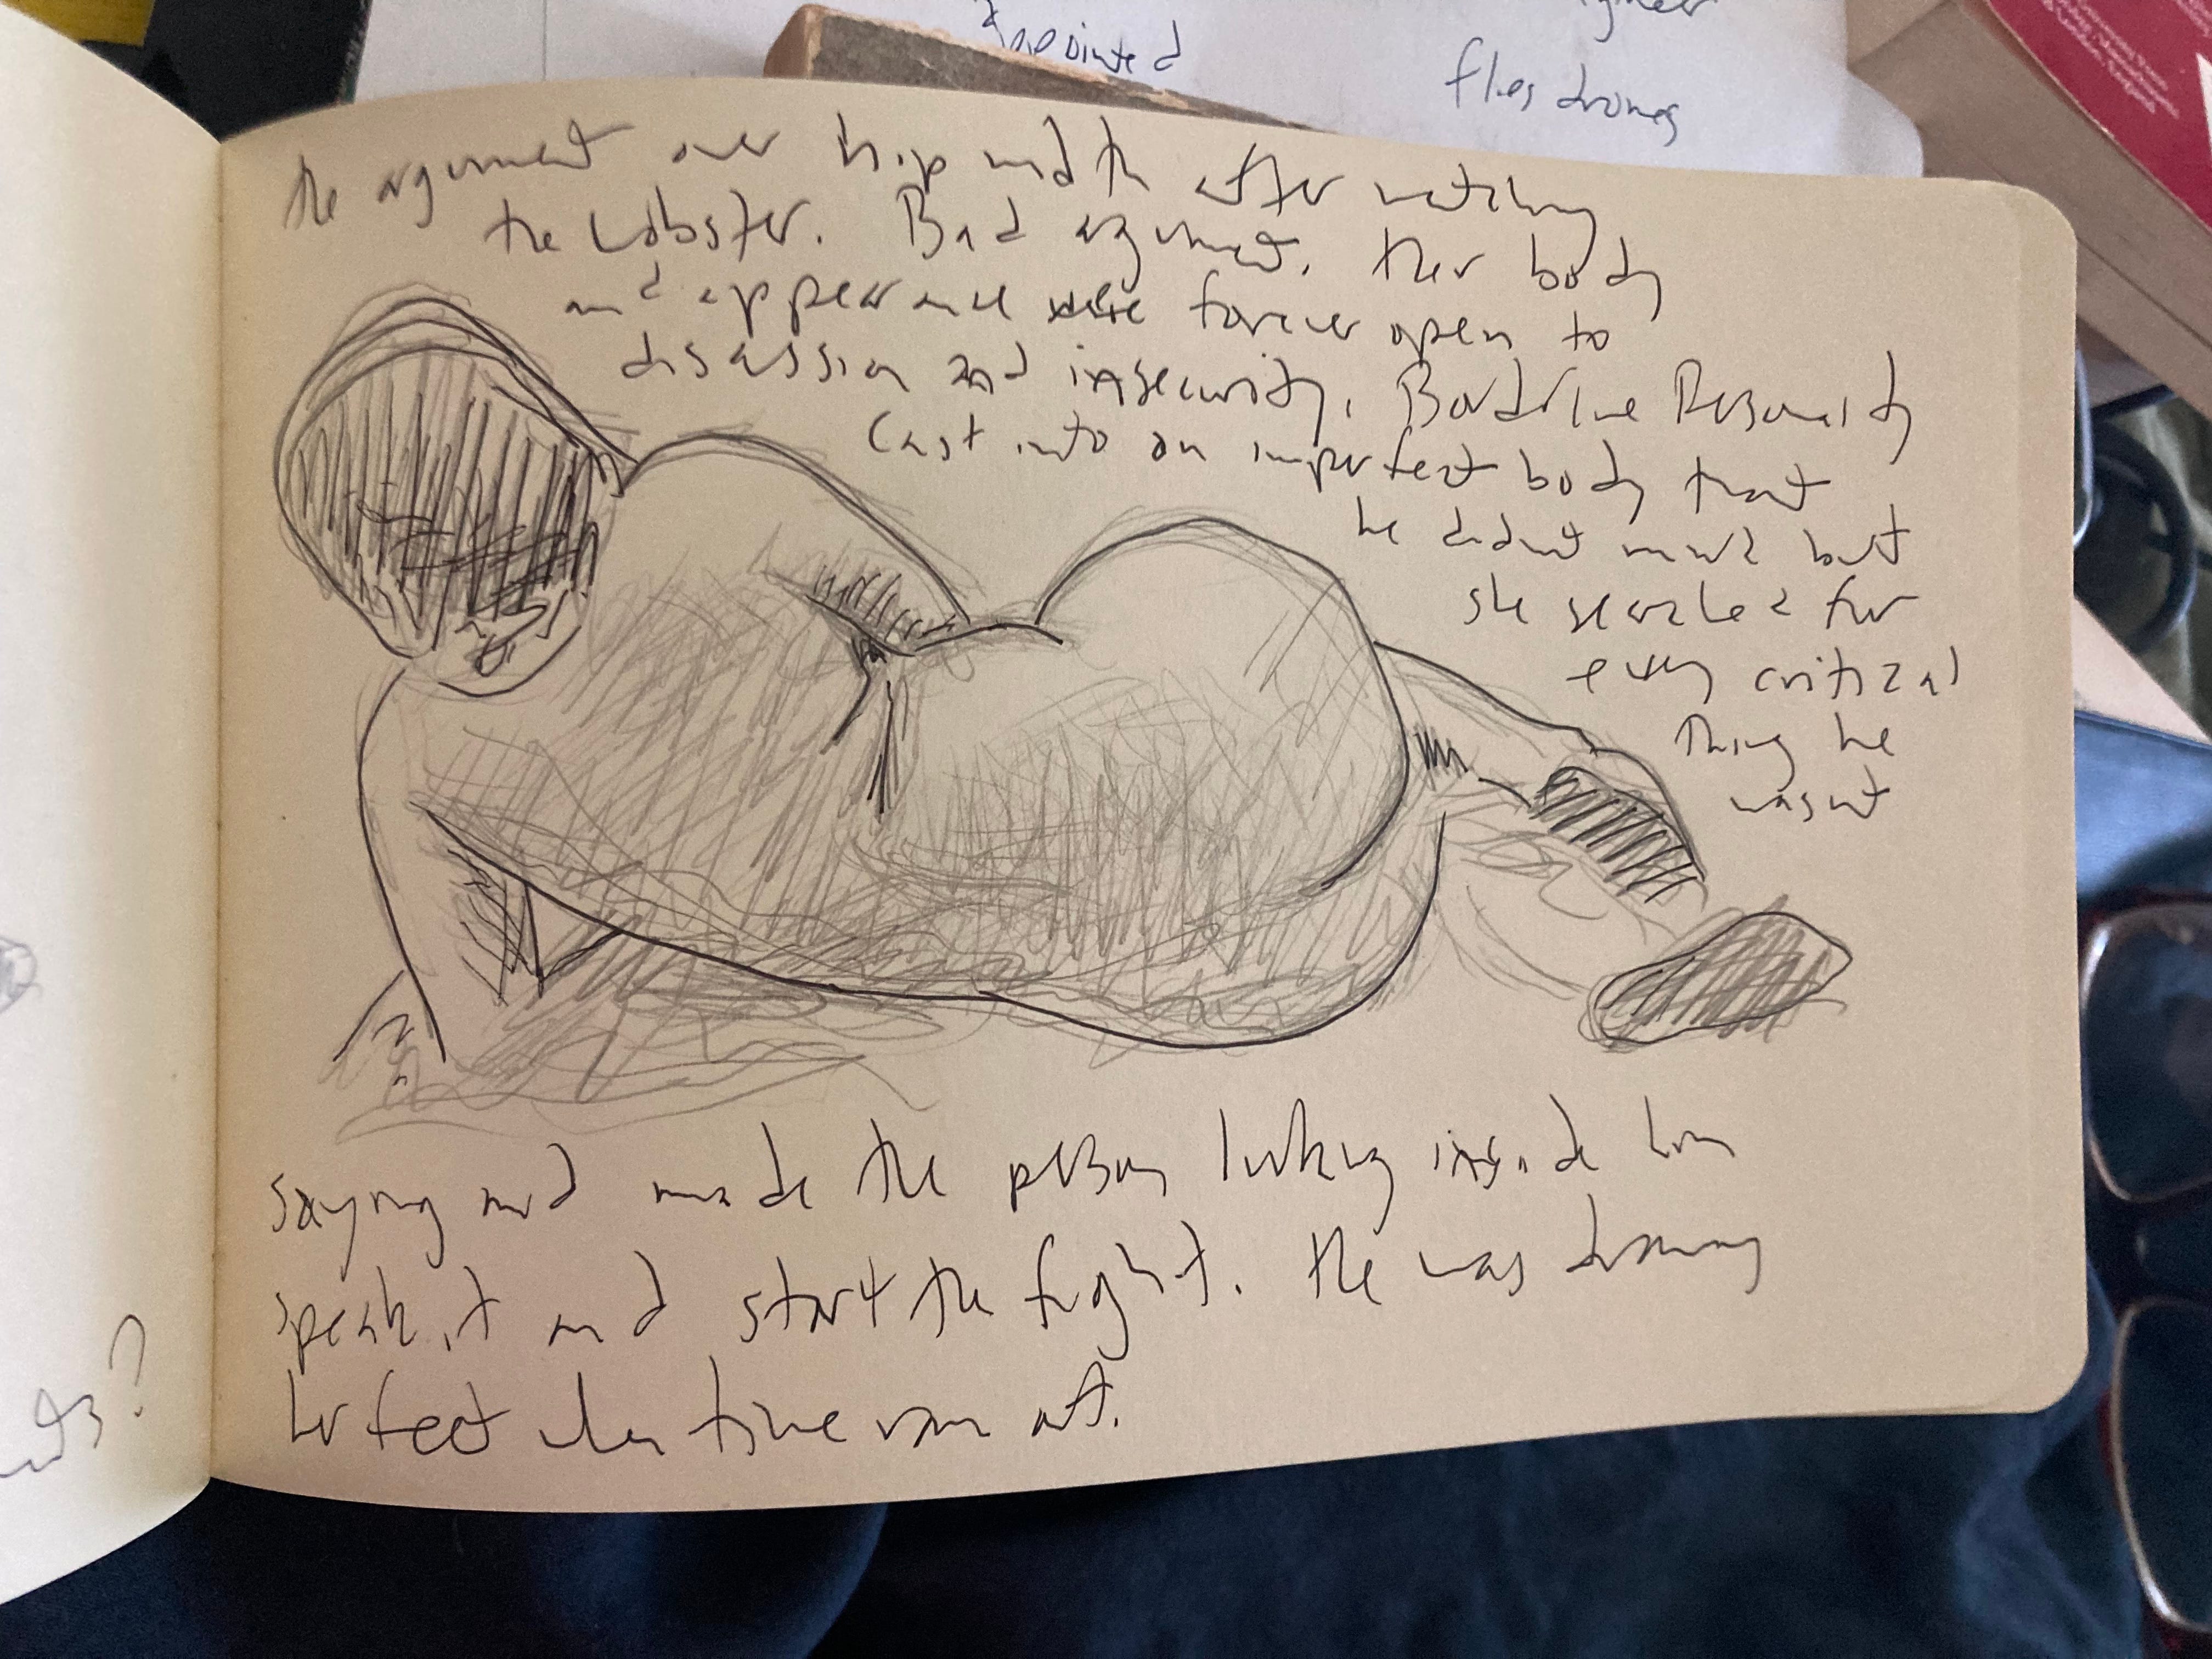 appointed
flies drones
the argument over hip width after watching
the Lobster. Bad argument. Her body
and appearance were forever open to
discussion and insecurity. Borderline Personality
Cast into an imperfect body that
he didnt mind but
she searched for
every critical
thing he
wasnt
saying and made the person looking inside him
speak it and start the fight. He was drawing
her feet when time ran out.